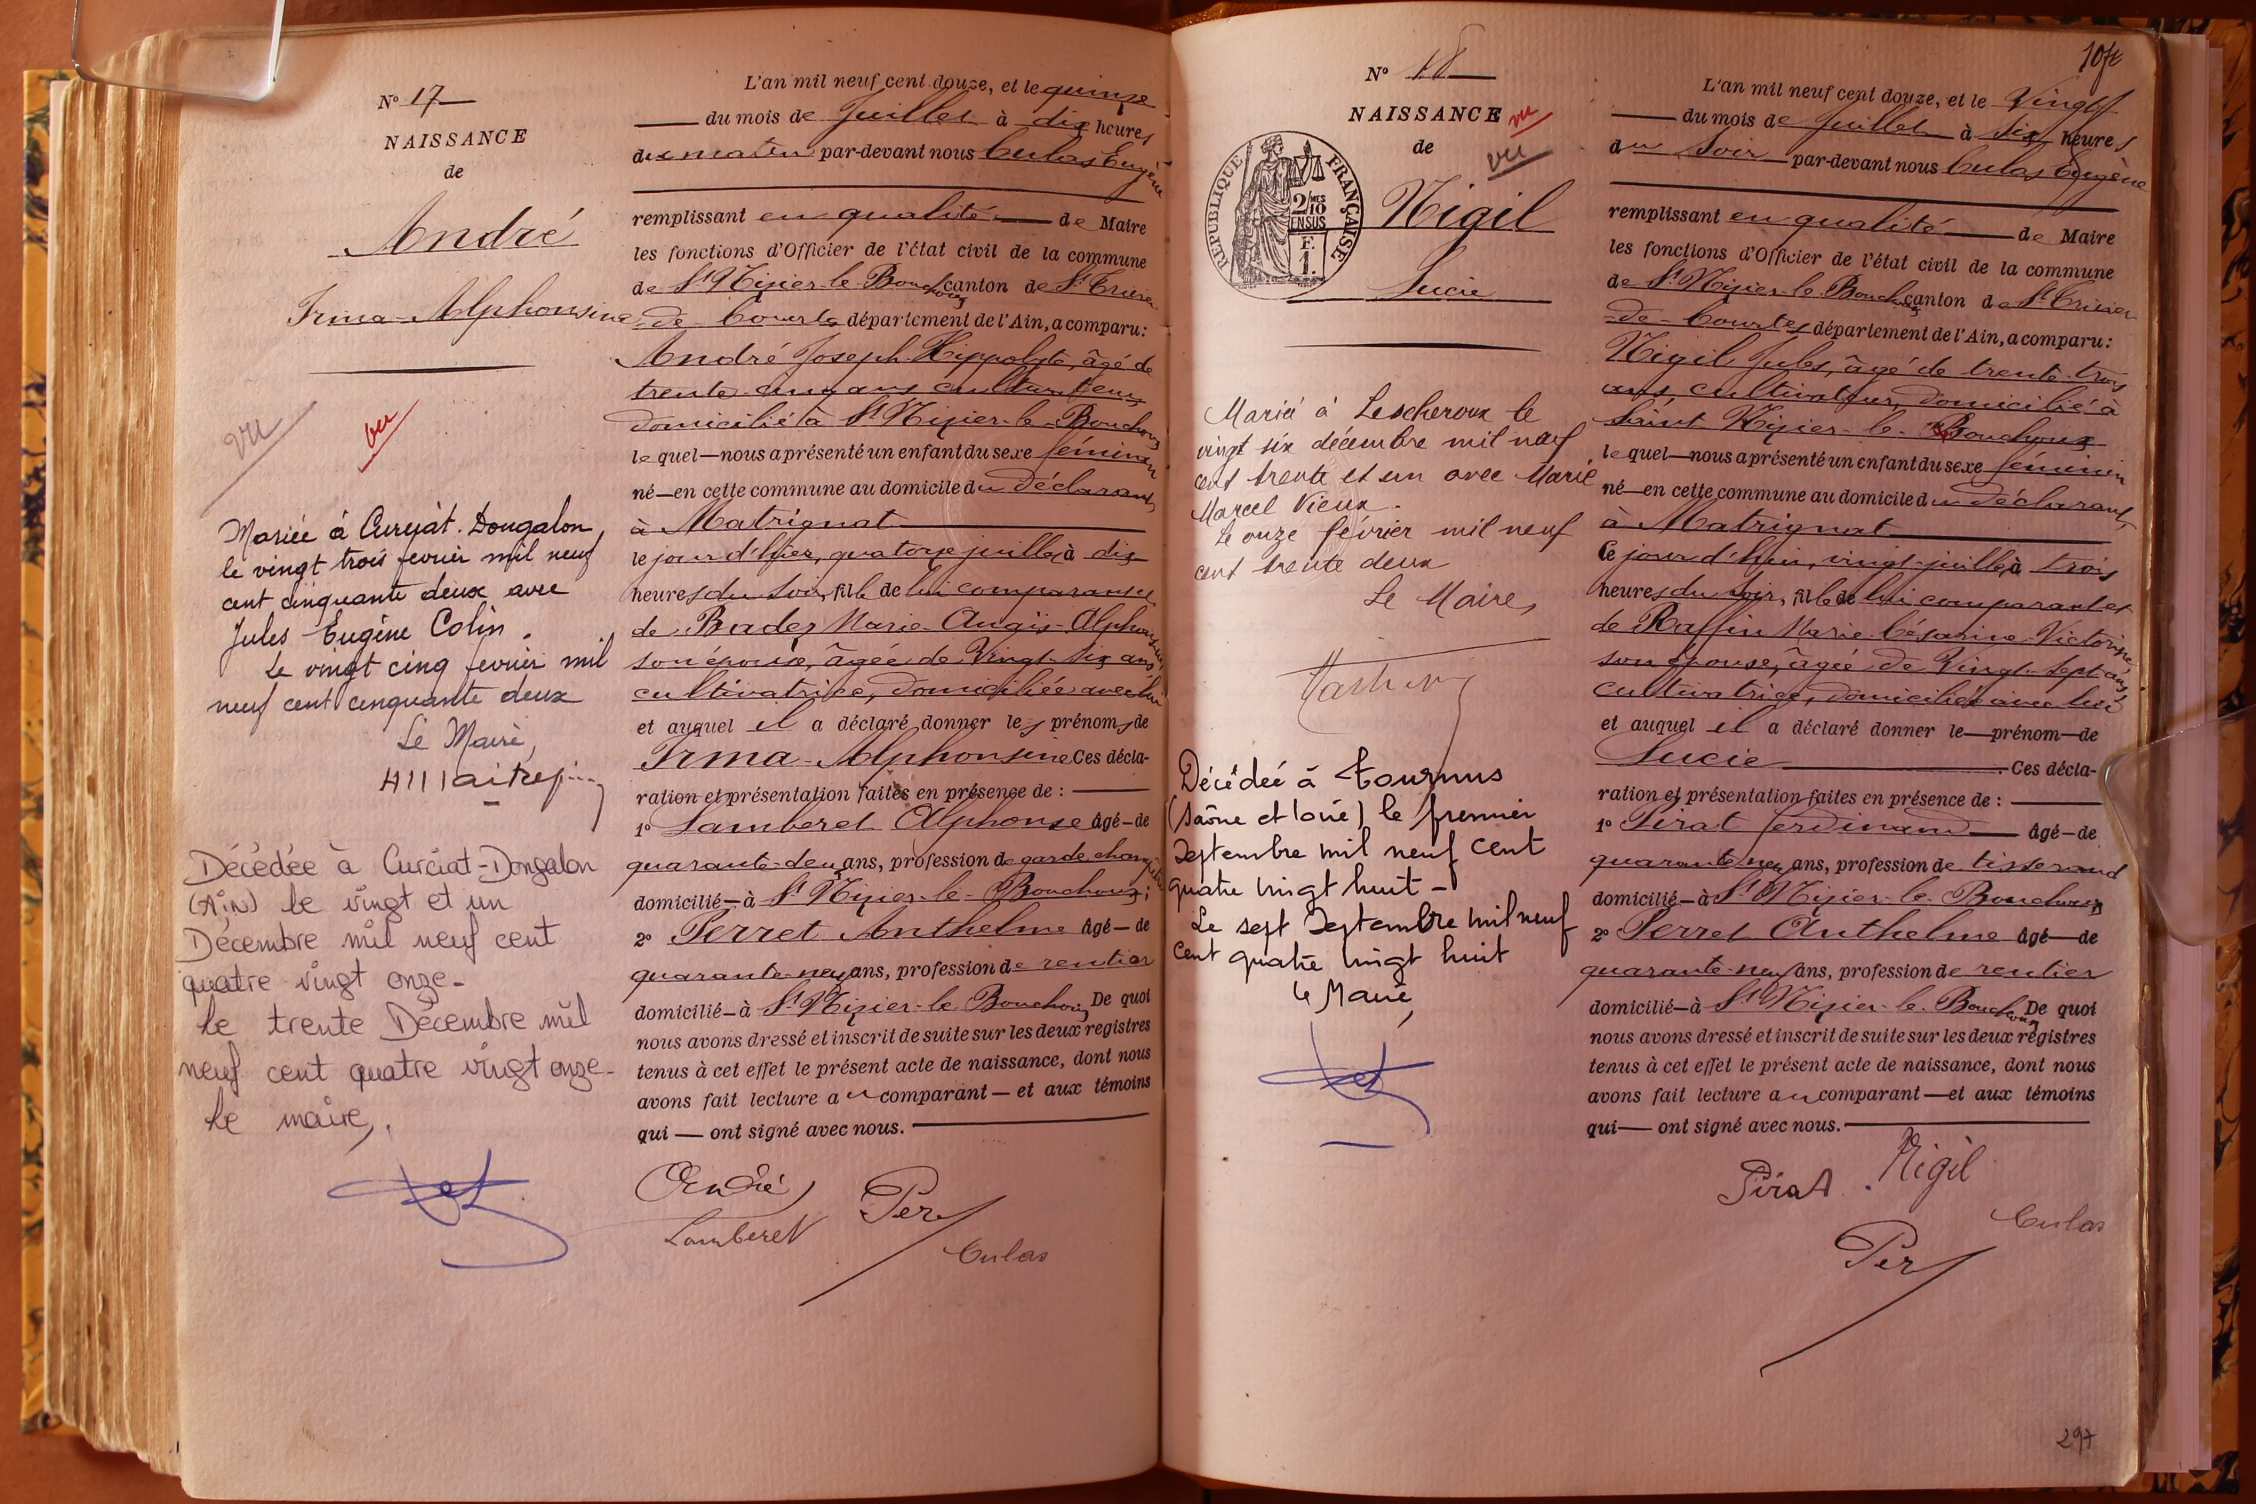 N° 17
NAISSANCE
de
André
Irma Alphonsine
vu
vu
Mariée à Curçiat-Dongalon,
le vingt trois fevrier mil neuf
cent cinquante deux avec
Jules Eugène Colin.
Le vingt cinq fevrier mil
neuf cent cinquante deux
Le Maire,
Décédée à Curciat-Dongalon
(AiN) le vingt et un
Décembre mil neuf cent
quatre vingt onze-
le trente Décembre mil
neuf cent quatre vingt onze-
le maire,
L'an mil neuf cent douze, et le quinze
du mois de Juillet à dix heures
du matin par-devant nous Culas Eugène
remplissant en qualité de Maire
les fonctions d'Officier de l'état civil de la commune
de St Nizier-le-Bouchoux canton de St Trivier
-de-Courtes département de l'Ain, a comparu:
André Joseph Hippolyte, âgé de
trente cinq ans cultivateur,
domicilié à St Nizier-le-Bouchoux
lequel—nous a présenté un enfant du sexe féminin
né—en cette commune au domicile du déclarant,
à Matrignat
le jour d'hier, quatorze juillet, à dix
heures du soir, fille de lui comparant et
de Bader Marie Alphonsine,
son épouse, âgée de Vingt-six ans
cultivatrice, domiciliée avec lui
et auquel il a déclaré donner les prénoms de
Irma-Alphonsine Ces décla-
ration et présentation faites en présence de :
1° Lamberet Alphonse âgé—de
quarante-deux ans, profession de garde champêtre
domicilié—à St Nizier-le-Bouchoux;
2° Perret Anthelme âgé—de
quarante-neuf ans, profession de rentier
domicilié—à St Nizier-le-Bouchoux De quoi
nous avons dressé et inscrit de suite sur les deux registres
tenus à cet effet le présent acte de naissance, dont nous
avons fait lecture au comparant — et aux témoins
qui — ont signé avec nous.
André
Lamberet Per
Culas
N° 18
NAISSANCE
de
vu
vu
RÉPUBLIQUE FRANÇAISE
2/10 MES
EN SUS
F.
1.
Nigil
Lucie
Mariée à Lescheroux le
vingt six décembre mil neuf
cent trente et un avec Marie
Marcel Vieux.
Le onze février mil neuf
cent trente deux
Le Maire,
Décédée à tournus
(Saône et loire) le premier
Septembre mil neuf cent
quatre vingt huit -
Le sept Septembre mil neuf
cent quatre vingt huit
Le Maire,
L'an mil neuf cent douze, et le Vingt
du mois de Juillet à six heures
du Soir par-devant nous Culas Eugène
remplissant en qualité de Maire
les fonctions d'Officier de l'état civil de la commune
de St Nizier-le-Bouchoux canton de St Trivier
-de-Courtes département de l'Ain, a comparu:
Nigil Jules, âgé de trente-trois
ans, cultivateur, domicilié à
Saint Nizier-le-Bouchoux
lequel—nous a présenté un enfant du sexe féminin
né—en cette commune au domicile du déclarant,
à Matrignat
Ce jour d'hui, vingt juillet, à trois
heures du soir, fille de lui comparant et
de Raffin Marie Césarine Victorine,
son épouse, âgée de Vingt-sept ans,
cultivatrice, domiciliée avec lui
et auquel il a déclaré donner le—prénom—de
Lucie Ces décla-
ration et présentation faites en présence de :
1° Pirat Ferdinand âgé—de
quarante neuf ans, profession de tisserand
domicilié—à St Nizier-le-Bouchoux
2° Perret Anthelme âgé—de
quarante-neuf ans, profession de rentier
domicilié—à St Nizier-le-Bouchoux De quoi
nous avons dressé et inscrit de suite sur les deux registres
tenus à cet effet le présent acte de naissance, dont nous
avons fait lecture au comparant — et aux témoins
qui — ont signé avec nous.
Pirat Nigil
Culas
Per
297